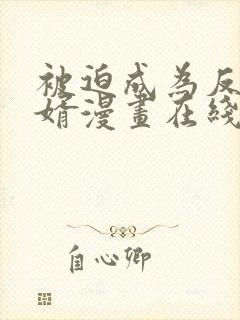 被迫成為反
婿漫畫在綫
自心卿